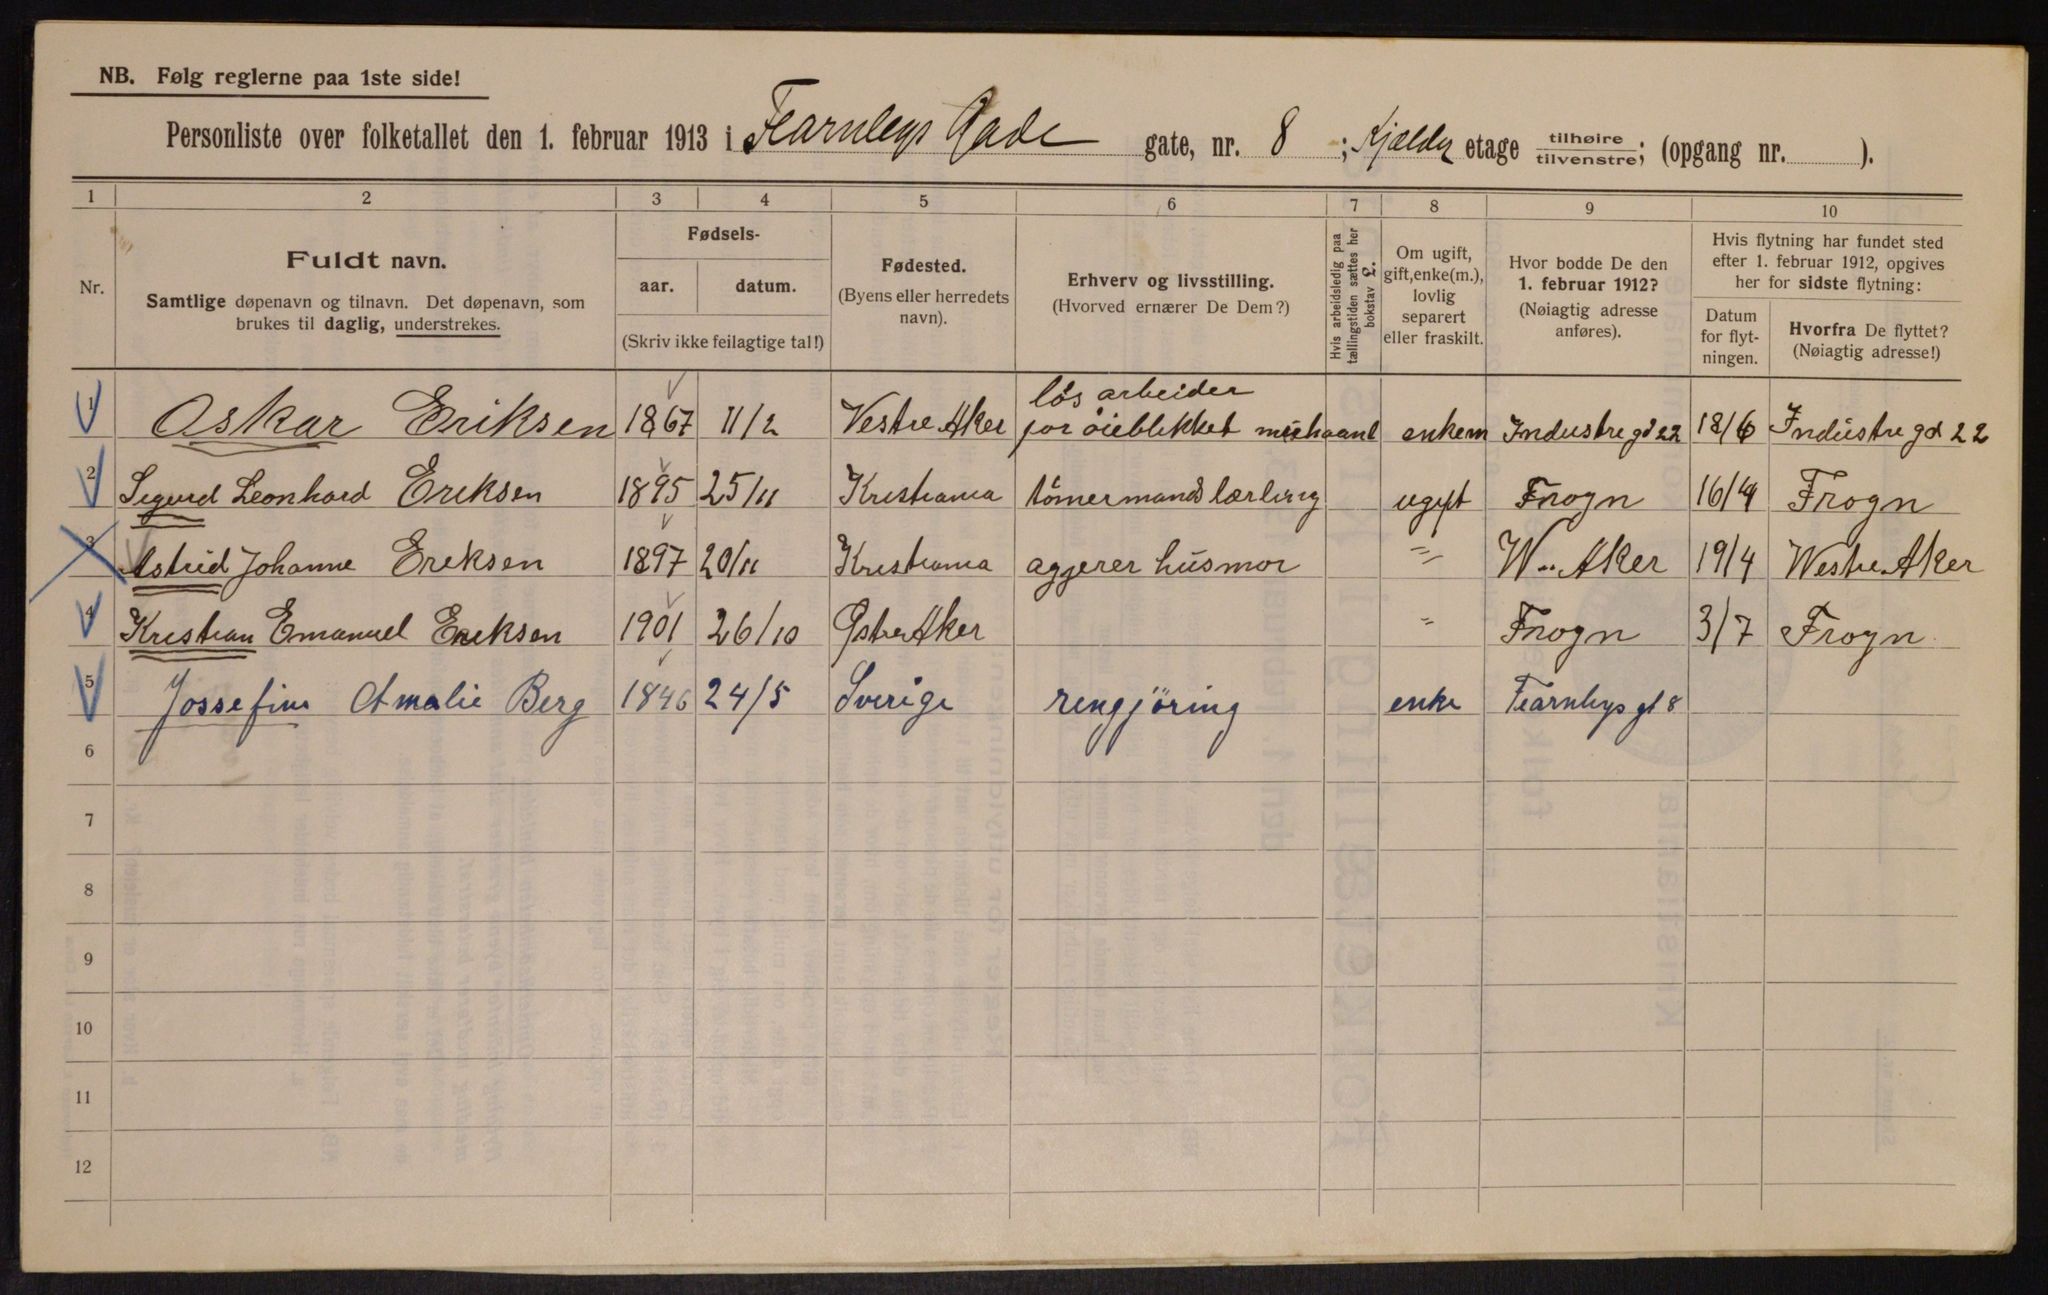 NB. Følg reglerne paa 1ste side!
Personliste over folketallet den 1. februar 1913 i Fearnleys Gade gate, nr. 8 ; Kjælder etage tilhøire tilvenstre; (opgang nr. ).
1 2 3 4 5 6 7 8 9 10
Nr.
Fuldt navn.
Samtlige døpenavn og tilnavn. Det døpenavn, som
brukes til daglig, understrekes.
Fødsels-
aar. datum.
(Skriv ikke feilagtige tal!)
Fødested.
(Byens eller herredets
navn).
Erhverv og livsstilling.
(Hvorved ernærer De Dem?)
Hvis arbeidsledig paa
tællingstiden sættes her
bokstav L.
Om ugift,
gift, enke(m.),
lovlig
separert
eller fraskilt.
Hvor bodde De den
1. februar 1912?
(Nøiagtig adresse
anføres).
Hvis flytning har fundet sted
efter 1. februar 1912, opgives
her for sidste flytning:
Datum
for flyt-
ningen.
Hvorfra De flyttet?
(Nøiagtig adresse!)
løs arbeider
1 Oskar Eriksen 1867 11/2 Vestre Aker for öieblikket enkem Industrigd 22 18/6 Industrigd 22
2 Sigurd Leonhard Eriksen 1895 25/11 Kristiania tömermands lærling ugift Frogn 16/4 Frogn
3 Astrid Johanne Eriksen 1897 20/11 Kristiania agjerer husmor " W. Aker 19/4 Westre Aker
4 Kristian Emanuel Eriksen 1901 26/10 Østre Aker " Frogn 3/7 Frogn
5 Jossefine Amalie Berg 1846 24/5 Sverige rengjöring enke Fearnleys gt 8
6
7
8
9
10
11
12